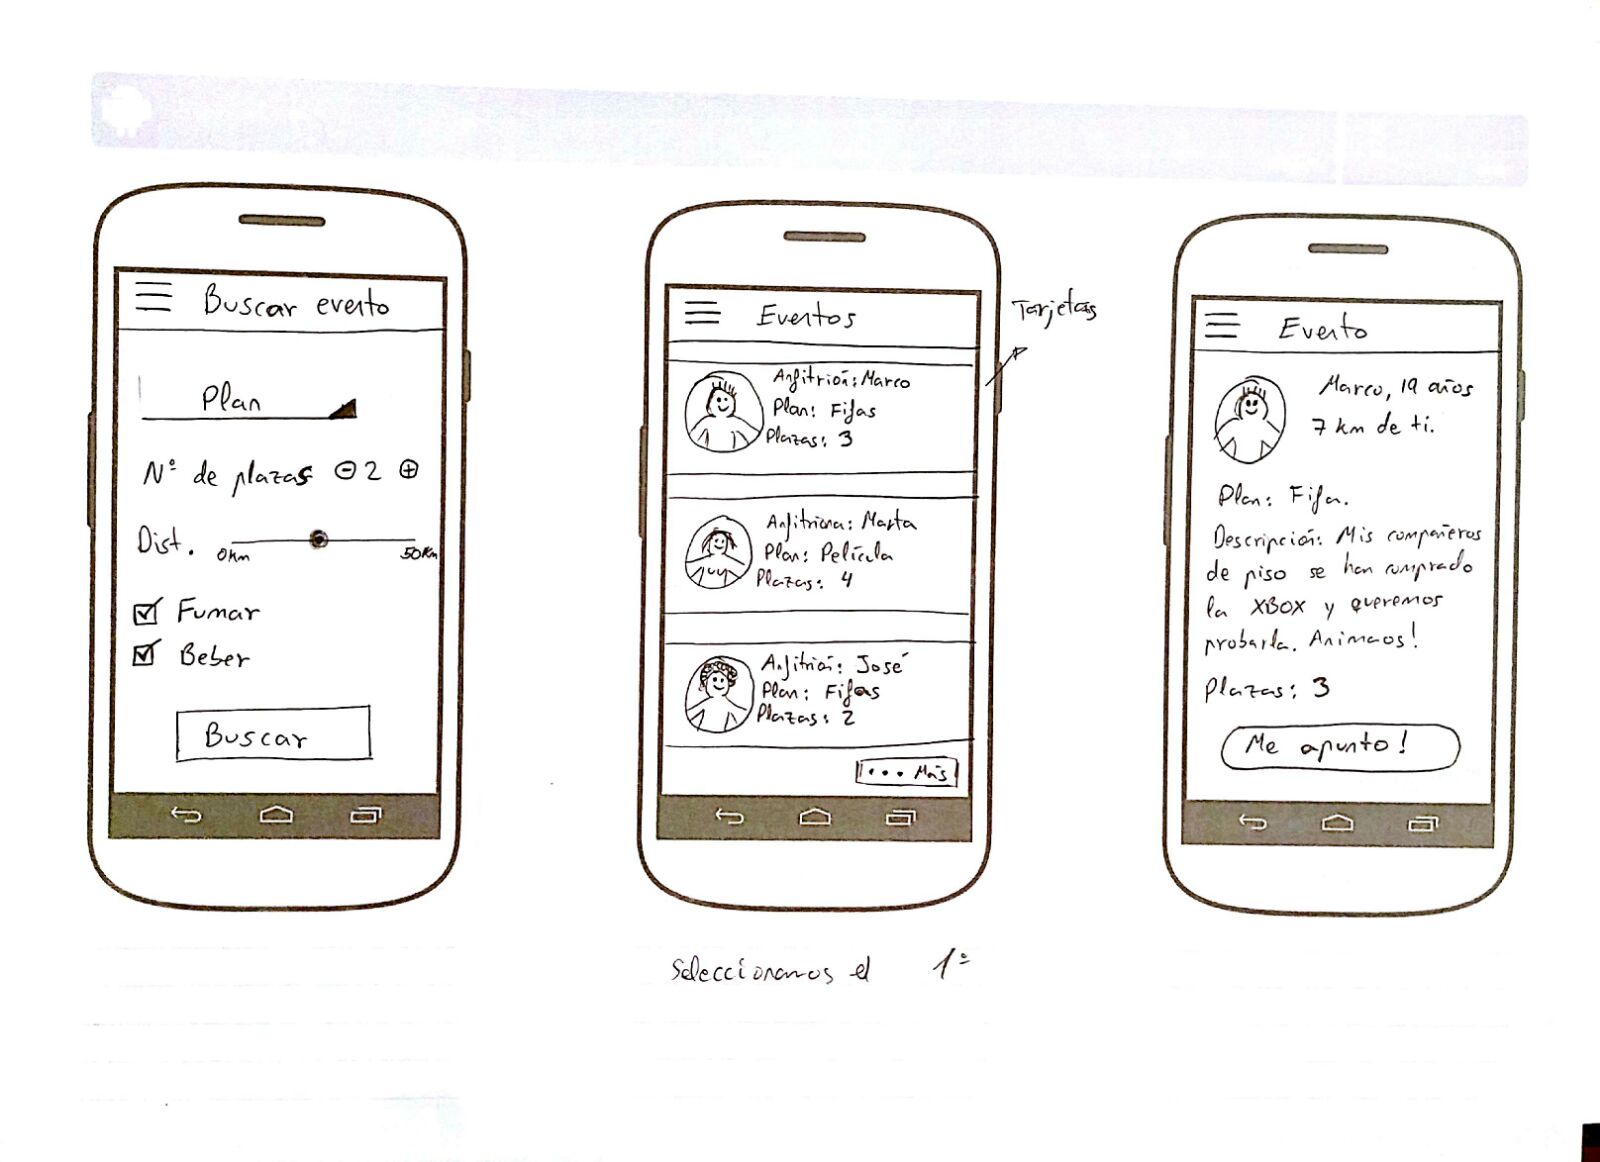 Buscar evento
Plan
Nº de plazas ⊖ 2 ⊕
Dist. 0km 50km
Fumar
Beber
Buscar
Eventos
Tarjetas
Anfitrión: Marco
Plan: Fifas
Plazas: 3
Anfitriona: Marta
Plan: Película
Plazas: 4
Anfitrión: José
Plan: Fifas
Plazas: 2
... Más
Seleccionamos el 1º
Evento
Marco, 19 años
7 km de ti.
Plan: Fifa.
Descripción: Mis compañeros
de piso se han comprado
la XBOX y queremos
probarla. Animaos!
Plazas: 3
Me apunto!